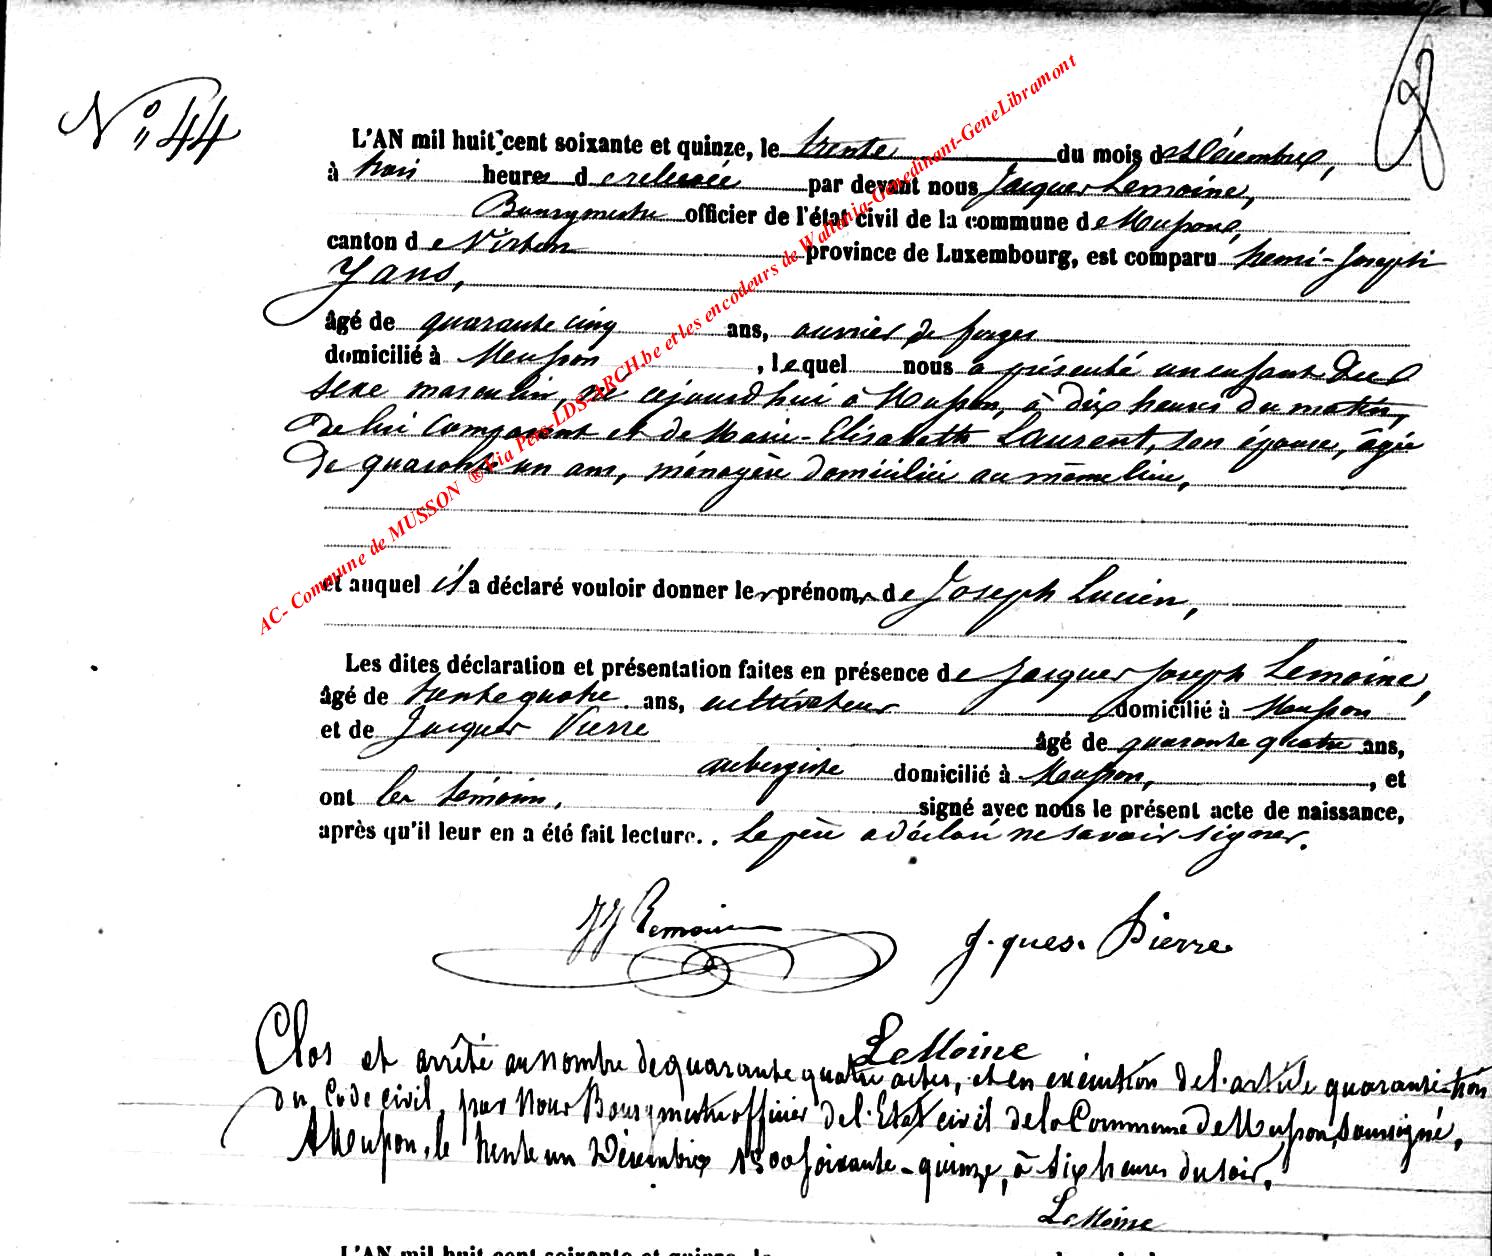 N° 44
8
L'AN mil huit cent soixante et quinze, le trente du mois de Décembre,
à trois heures de relevée par devant nous Jacques Lemoine,
Bourgmestre officier de l'état civil de la commune de Musson,
canton de Virton province de Luxembourg, est comparu henri-Joseph
Yans,
âgé de quarante cinq ans, ouvrier de forges
domicilié à Musson, lequel nous a présenté un enfant du
sexe masculin, né cejourd'hui à Musson, à dix heures du matin,
de lui comparant et de Marie-Elisabeth Laurent, son épouse, âgée
de quarante un ans, ménagère domiciliée au même lieu,
et auquel il a déclaré vouloir donner les prénoms de Joseph Lucien,
Les dites déclaration et présentation faites en présence de Jacques Joseph Lemoine,
âgé de trente quatre ans, cultivateur domicilié à Musson
et de Jacques Pierre âgé de quarante quatre ans,
aubergiste domicilié à Musson, et
ont les témoins, signé avec nous le présent acte de naissance,
après qu'il leur en a été fait lecture.. Le père a déclaré ne savoir signer.
JJ Lemoine J.ques. Pierre
LeMoine
Clos et arrêté au nombre de quarante quatre actes, et en exécution de l'article quarante-trois
du Code civil, par Nous Bourgmestre officier de l'Etat civil de la Commune de Musson, soussigné,
A Musson, le trente un Décembre 1800 soixante-quinze, à six heures du soir.
LeMoine
L'AN mil huit cent soixante et quinze, le
AC- Commune de MUSSON ® Via Pers-LDS-ARCH.be et les encodeurs de Wallonia-Genedinant-GeneLibramont